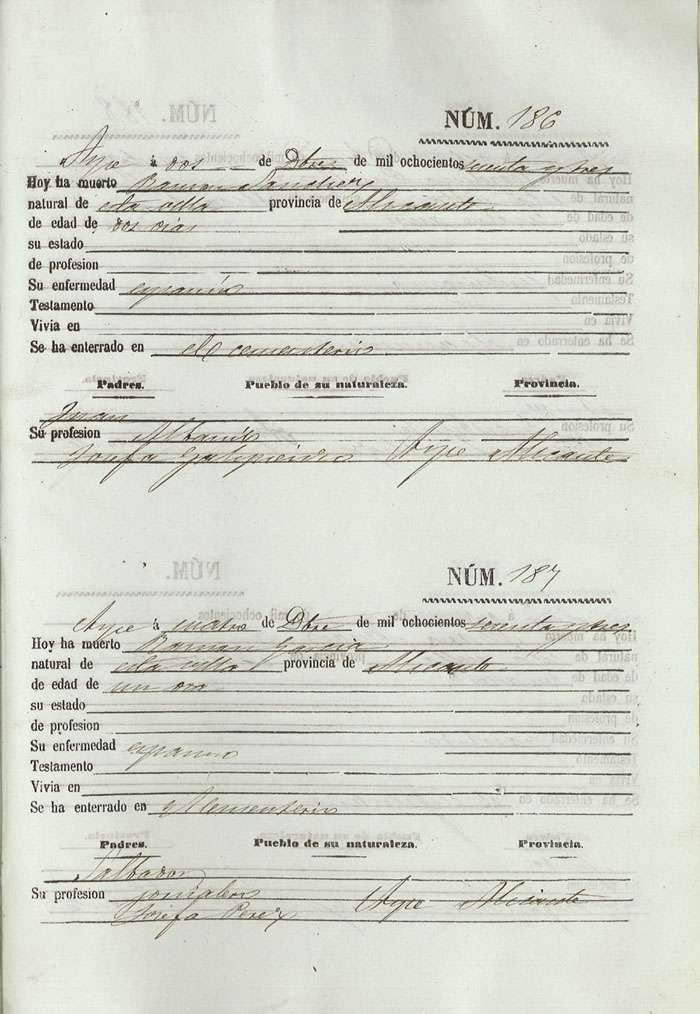 NÚM. 186
Aspe á dos de Dbre de mil ochocientos setenta y tres
Hoy ha muerto Ramon Sanchez
natural de esta villa provincia de Alicante
de edad de dos dias
su estado
de profesion
Su enfermedad espasmo
Testamento
Vivia en
Se ha enterrado en el cementerio
Padres. Pueblo de su naturaleza. Provincia.
Juan
Su profesion Albañil
Josefa Aspe Alicante
NÚM. 187
Aspe á cuatro de Dbre de mil ochocientos setenta y tres
Hoy ha muerto Ramon Garcia
natural de esta villa provincia de Alicante
de edad de un dia
su estado
de profesion
Su enfermedad espasmo
Testamento
Vivia en
Se ha enterrado en el cementerio
Padres. Pueblo de su naturaleza. Provincia.
Salbador
Su profesion jornalero
Josefa Perez Aspe Alicante